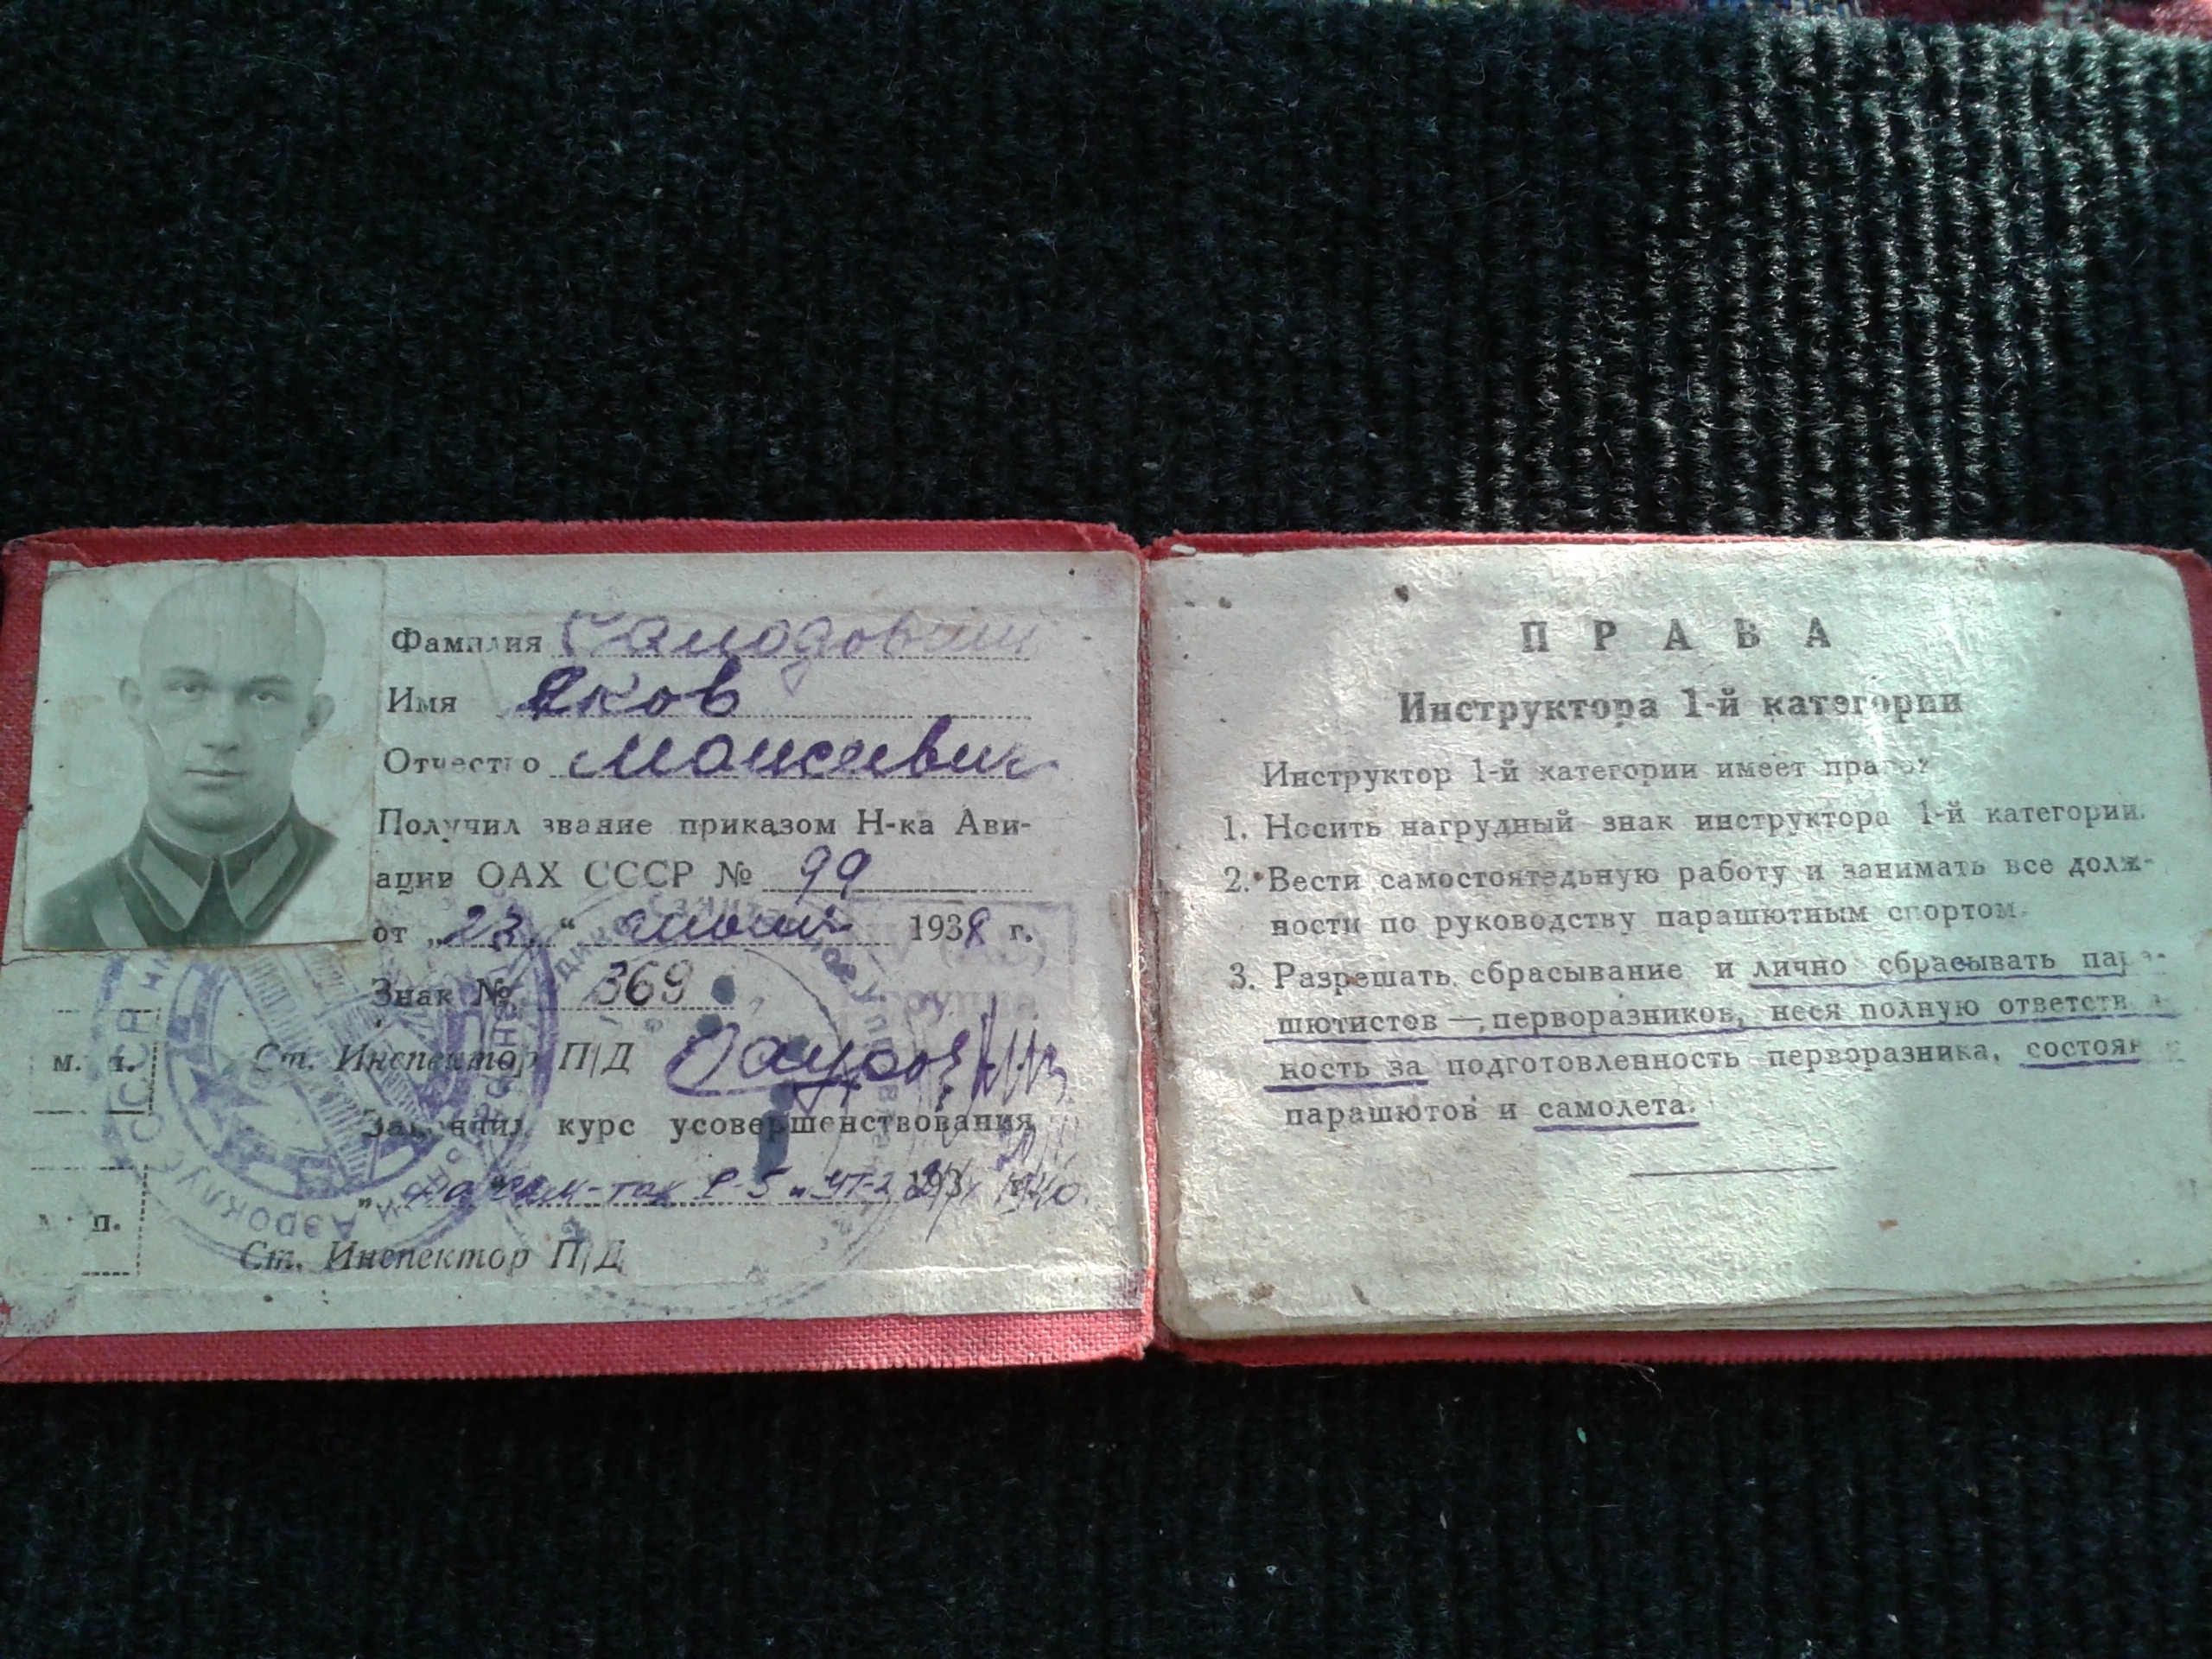 Фамилия
Имя Яков
Отчество Моисеевич
Получил звание приказом Н-ка Ави-
ации ОАХ СССР № 99
от „23 “ 1938 г.
Знак № 369
м. п. Ст. Инспектор П/Д
Закончил курс усовершенствования
Р-5 и УТ-2 193 1940.
п. Ст. Инспектор П/Д
СССР
АЭРОКЛУБ
ПРАВА
Инструктора 1-й категории
Инструктор 1-й категории имеет право:
1. Носить нагрудный знак инструктора 1-й категории.
2. Вести самостоятельную работу и занимать все долж-
ности по руководству парашютным спортом.
3. Разрешать сбрасывание и лично сбрасывать пара-
шютистов — перворазников, неся полную ответствен-
ность за подготовленность перворазника, состояние
парашютов и самолета.